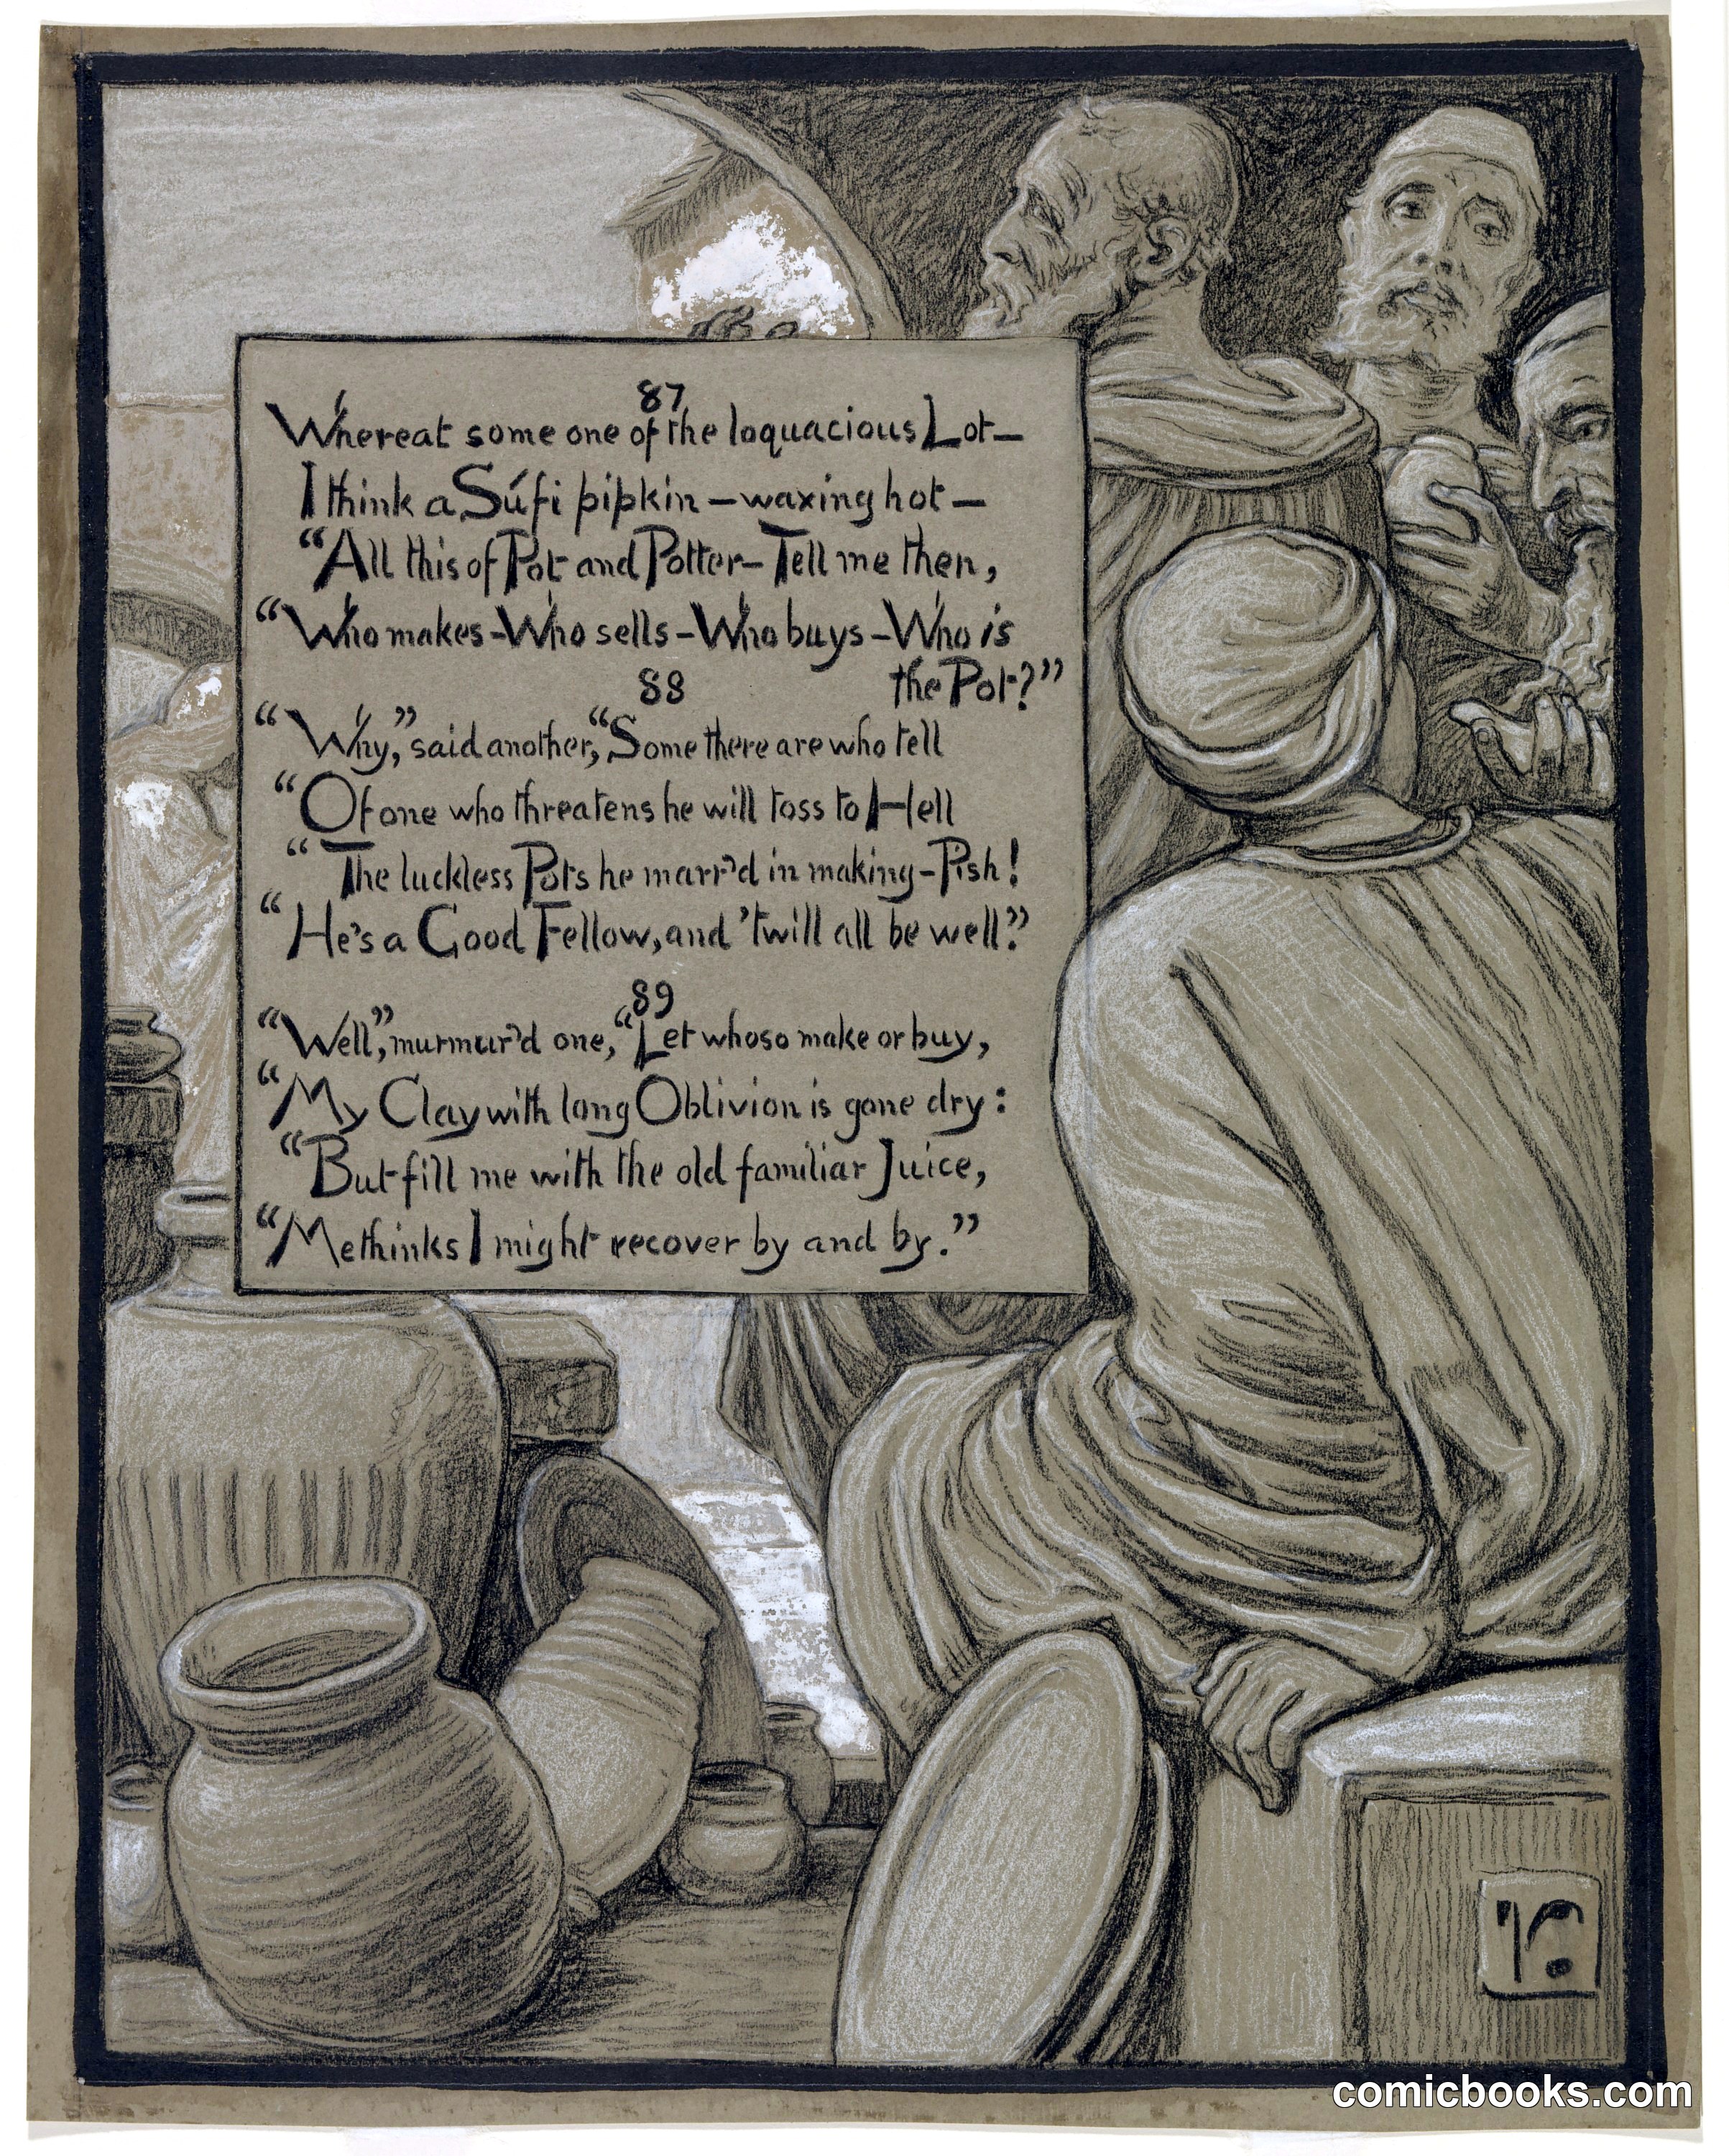 87
Whereat some one of the loquacious Lot—
I think a Súfi pipkin—waxing hot—
“All this of Pot and Potter—Tell me then,
“Who makes—Who sells—Who buys—Who is
the Pot?”
88
“Why,” said another, “Some there are who tell
“Of one who threatens he will toss to Hell
“The luckless Pots he marr'd in making—Pish!
“He's a Good Fellow, and 'twill all be well.”
89
“Well,” murmur'd one, “Let whoso make or buy,
“My Clay with long Oblivion is gone dry:
“But fill me with the old familiar Juice,
“Methinks I might recover by and by.”
comicbooks.com